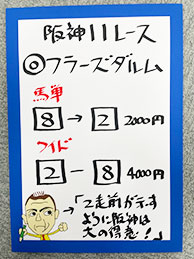 阪神11レース
◎フラーズダルム
馬単
8→2 2000円
ワイド
2-8 4000円
→「2走前が示す
ように阪神は
大の得意!」